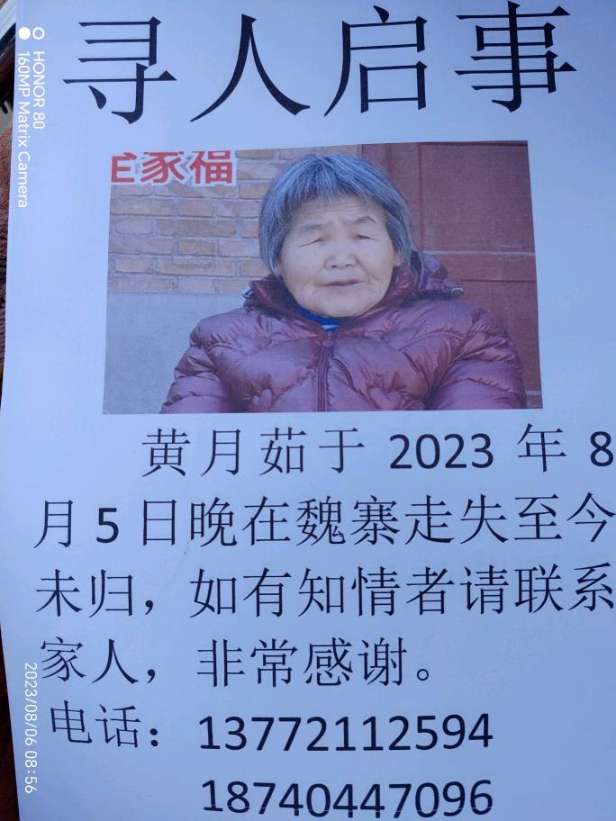 寻人启事
全家福
黄月茹于 2023 年 8
月 5 日晚在魏寨走失至今
未归，如有知情者请联系
家人，非常感谢。
电话：13772112594
18740447096
HONOR 80
160MP Matrix Camera
2023/08/06 08:56